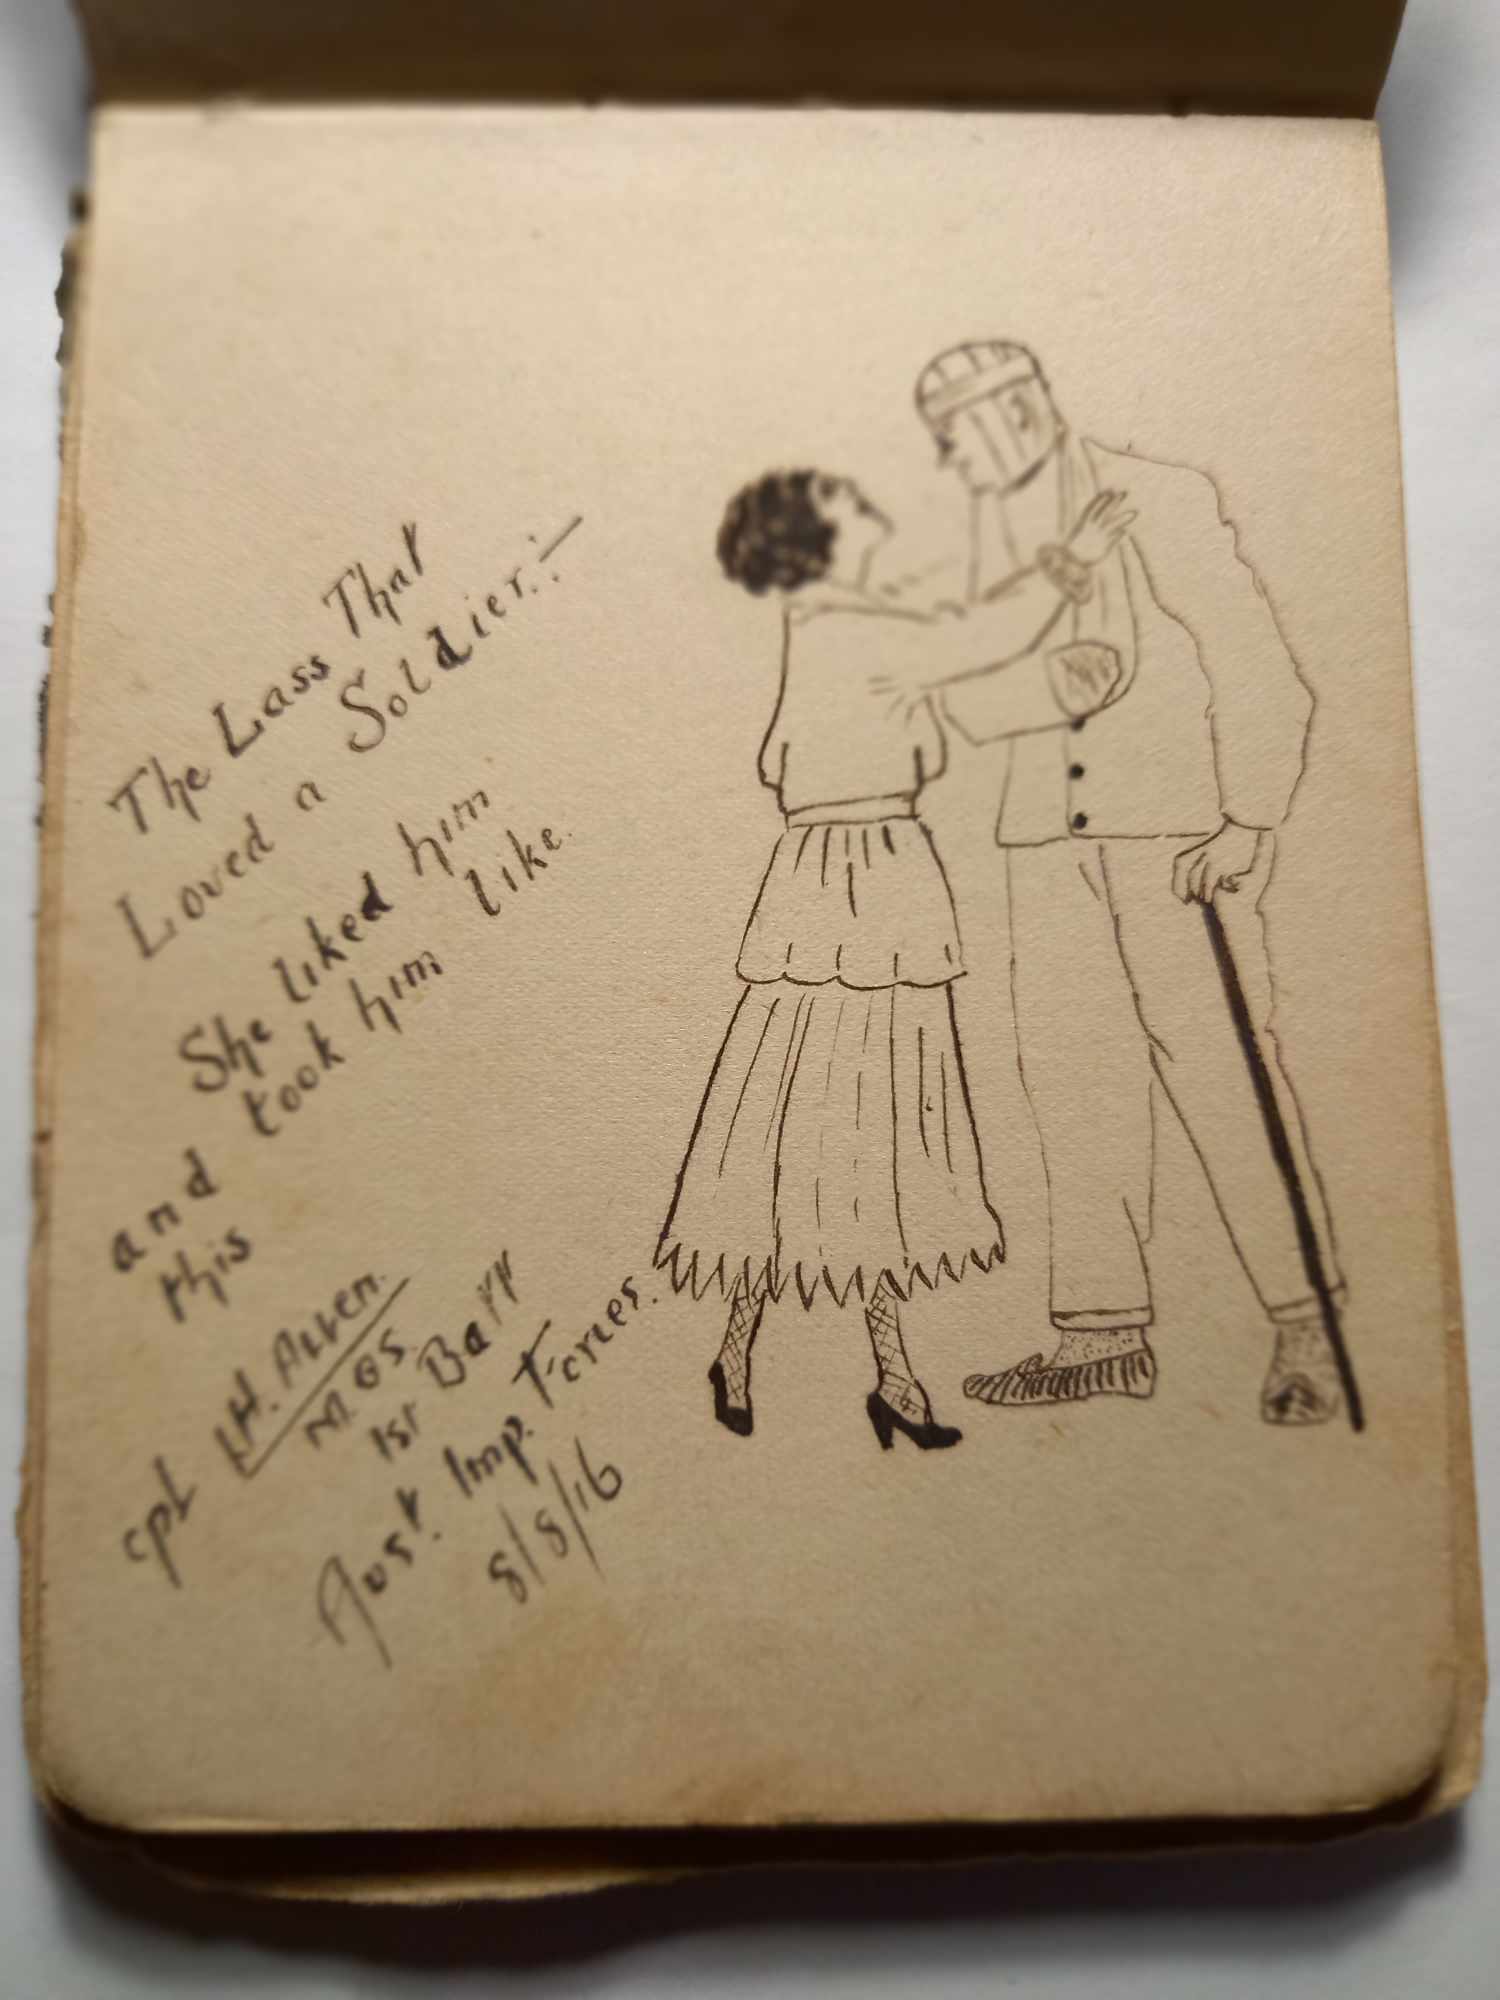 The Lass That
Loved a Soldier:-
She liked him
and took him like
this
cpl L.H. Allen.
M.G.S.
1st Batt
Aust. Imp. Forces.
8/8/16